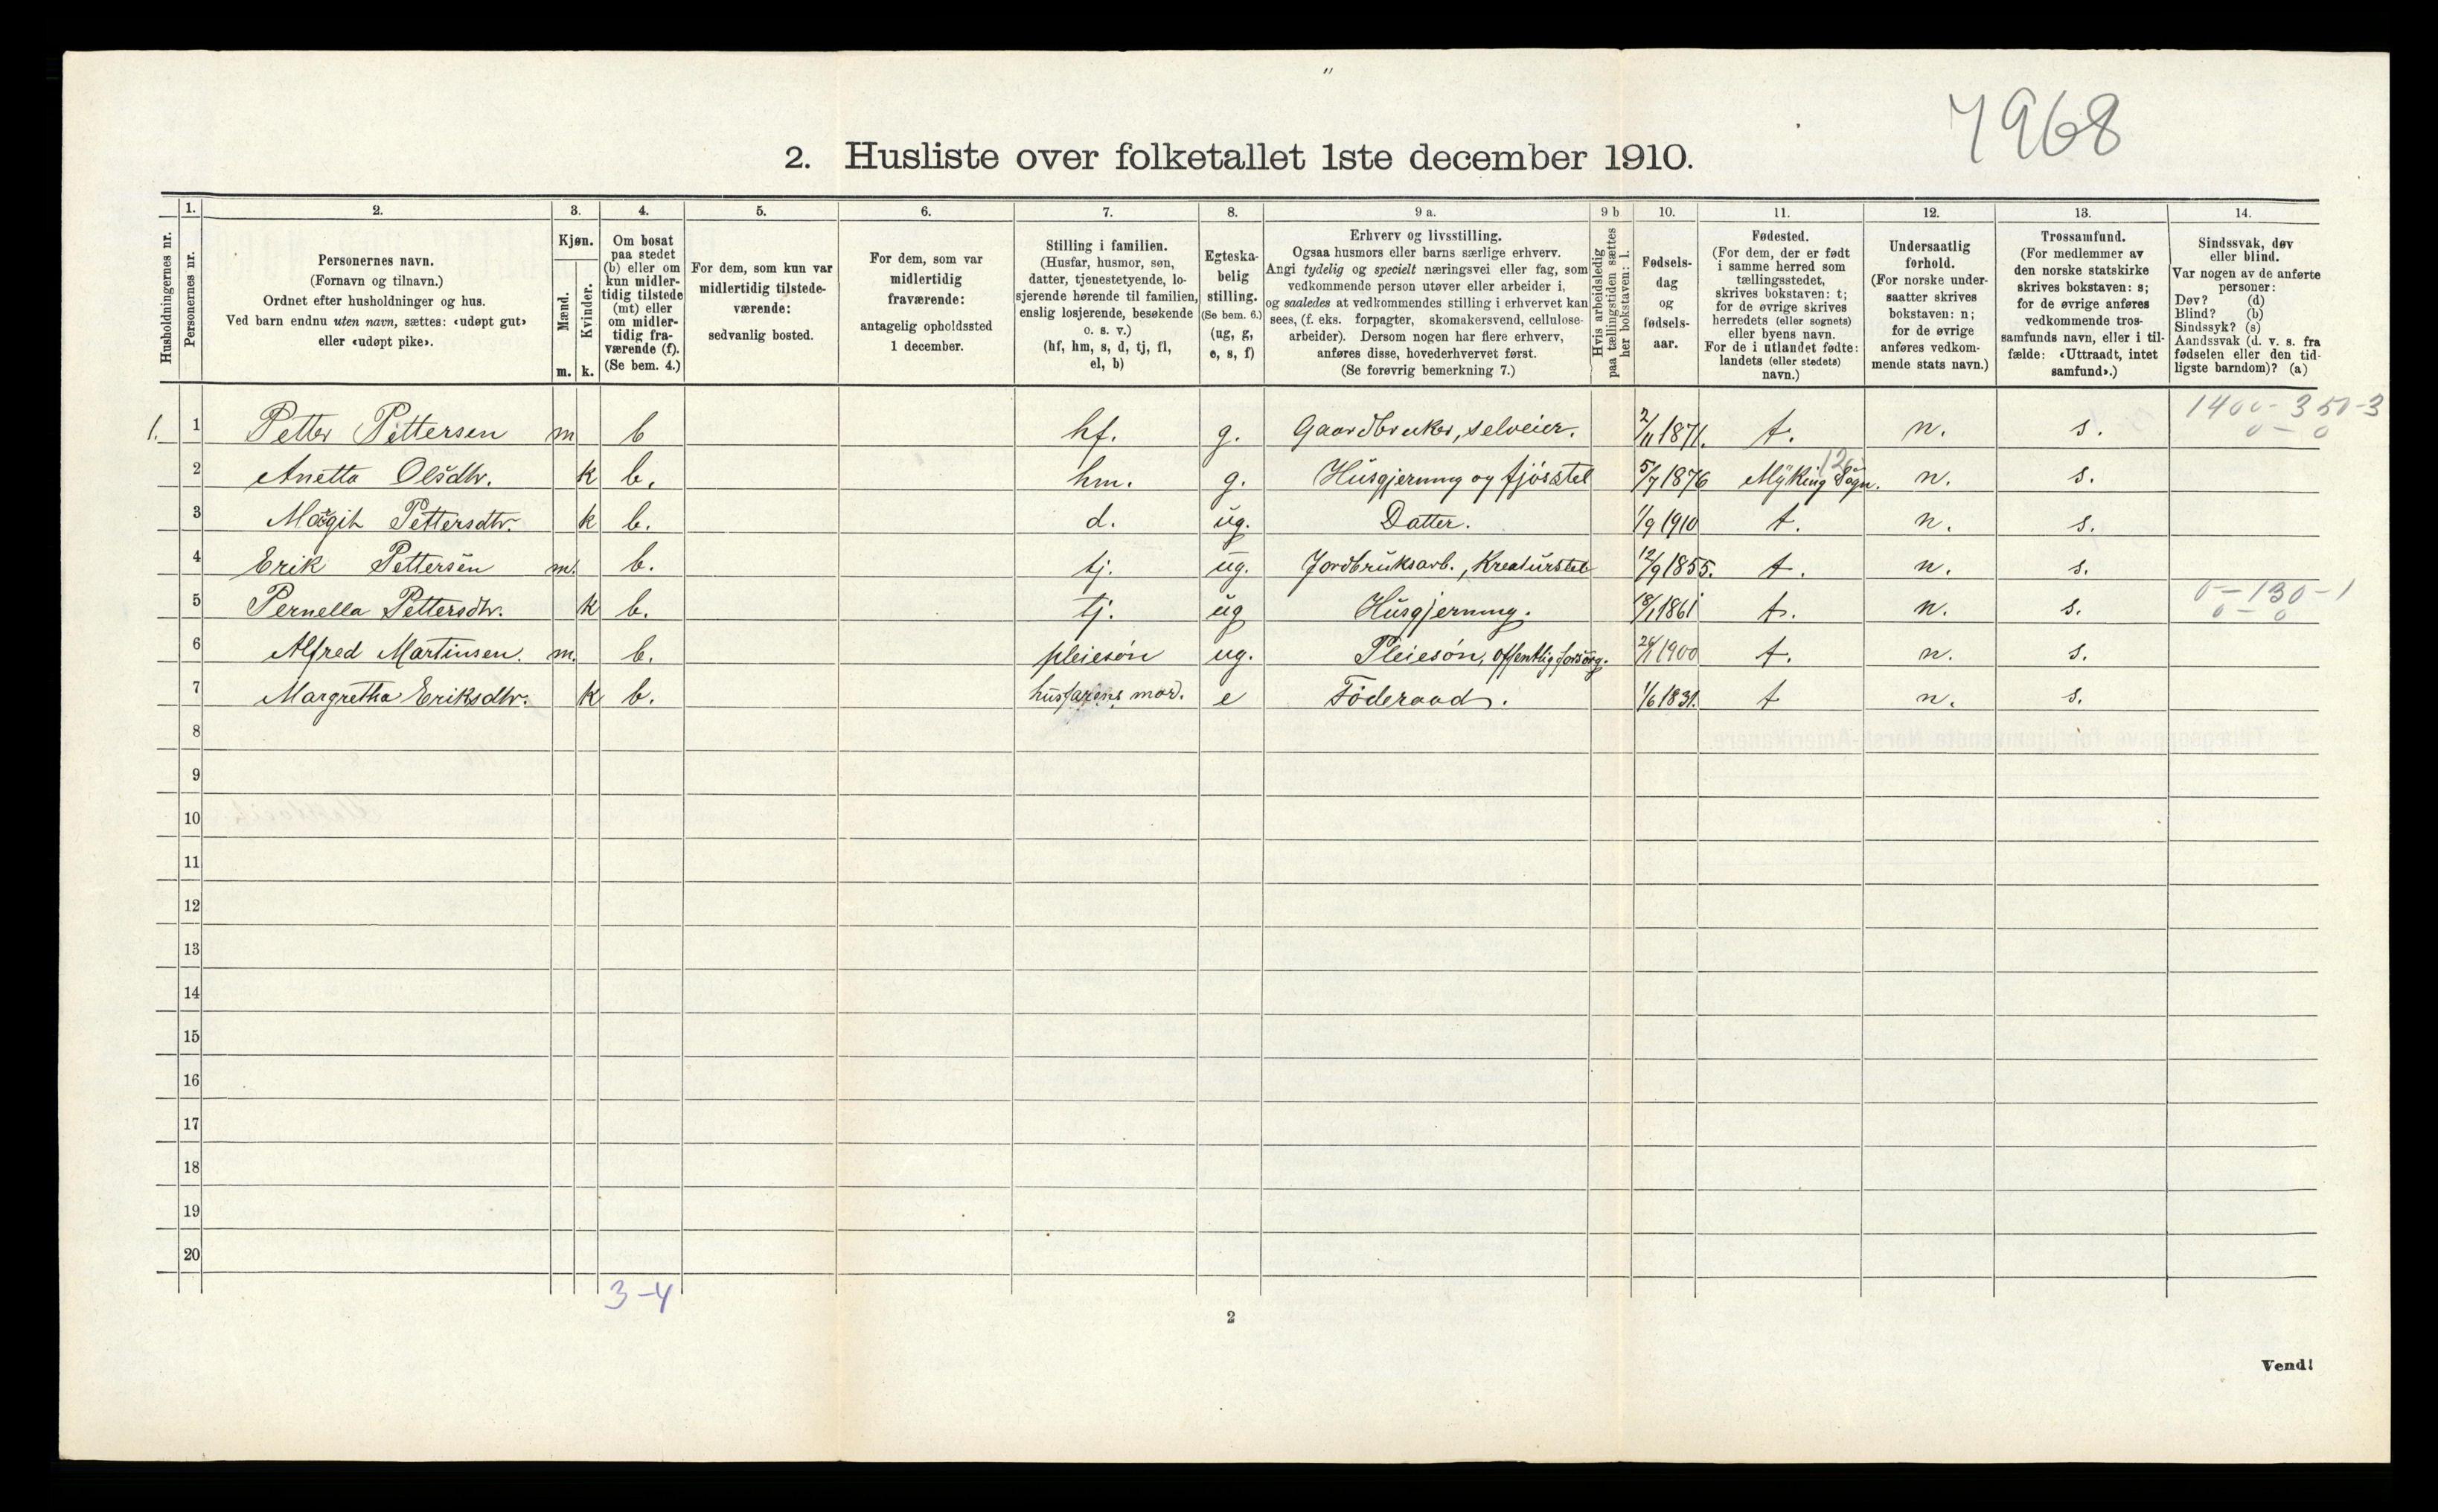 7968
2. Husliste over folketallet 1ste december 1910.
Husholdningernes nr.
1. Personernes nr.
2. Personernes navn.
(Fornavn og tilnavn.)
Ordnet efter husholdninger og hus.
Ved barn endnu uten navn, sættes: «udøpt gut»
eller «udøpt pike».
3. Kjøn.
Mænd. m.
Kvinder. k.
4. Om bosat
paa stedet
(b) eller om
kun midler-
tidig tilstede
(mt) eller
om midler-
tidig fra-
værende (f).
(Se bem. 4.)
5. For dem, som kun var
midlertidig tilstede-
værende:
sedvanlig bosted.
6. For dem, som var
midlertidig
fraværende:
antagelig opholdssted
1 december.
7. Stilling i familien.
(Husfar, husmor, søn,
datter, tjenestetyende, lo-
sjerende hørende til familien,
enslig losjerende, besøkende
o. s. v.)
(hf, hm, s, d, tj, fl,
el, b)
8. Egteska-
belig
stilling.
(Se bem. 6.)
(ug, g,
e, s, f)
9 a. Erhverv og livsstilling.
Ogsaa husmors eller barns særlige erhverv.
Angi tydelig og specielt næringsvei eller fag, som
vedkommende person utøver eller arbeider i,
og saaledes at vedkommendes stilling i erhvervet kan
sees, (f. eks. forpagter, skomakersvend, cellulose-
arbeider). Dersom nogen har flere erhverv,
anføres disse, hovederhvervet først.
(Se forøvrig bemerkning 7.)
9 b Hvis arbeidsledig
paa tællingstiden sættes
her bokstaven: l.
10. Fødsels-
dag
og
fødsels-
aar.
11. Fødested.
(For dem, der er født
i samme herred som
tællingsstedet,
skrives bokstaven: t;
for de øvrige skrives
herredets (eller sognets)
eller byens navn.
For de i utlandet fødte:
landets (eller stedets)
navn.)
12. Undersaatlig
forhold.
(For norske under-
saatter skrives
bokstaven: n;
for de øvrige
anføres vedkom-
mende stats navn.)
13. Trossamfund.
(For medlemmer av
den norske statskirke
skrives bokstaven: s;
for de øvrige anføres
vedkommende tros-
samfunds navn, eller i til-
fælde: «Uttraadt, intet
samfund».)
14. Sindssvak, døv
eller blind.
Var nogen av de anførte
personer:
Døv? (d)
Blind? (b)
Sindssyk? (s)
Aandssvak (d. v. s. fra
fødselen eller den tid-
ligste barndom)? (a)
1400-350-3
0-0
1. 1 Petter Pettersen m b hf. g. Gaardbruker, selveier. 2/11 1871. t. n. s.
2 Anetta Olsdtr. k b. hm. g. Husgjerning og fjøsstel 5/7 1876 Myking Sogn. n. s.
3 Magit Pettersdtr. k b. d. ug. Datter. 1/9 1910 t. n. s.
4 Erik Pettersen m. b. tj. ug. Jordbruksarb., Kreaturstel 12/9 1855. t. n. s.
0-130-1
0-0
5 Pernella Pettersdtr. k b. tj. ug Husgjerning. 18/1 1861 t. n. s.
6 Alfred Martinsen. m. b. pleiesön ug. Pleiesön, offentlig forsörg. 26/1 1900 t. n. s.
7 Margretha Eriksdtr. k b. husfarens mor. e Föderaad. 1/6 1831. t n. s.
8
9
10
11
12
13
14
15
16
17
18
19
20
3-4
2
Vend!